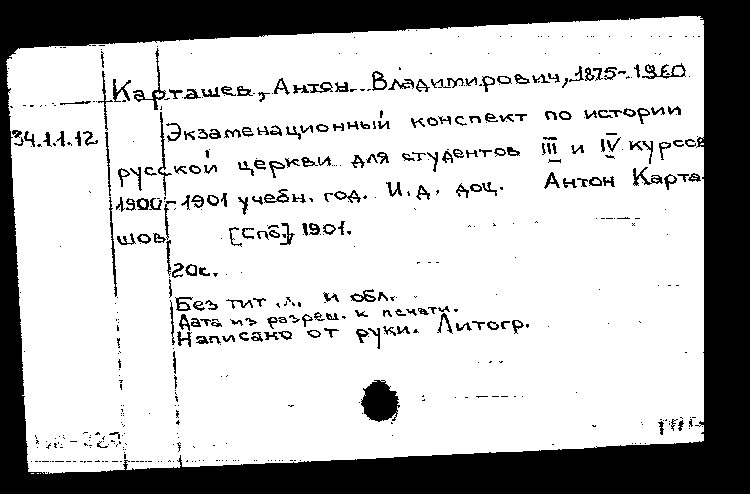 Карташев, Антон Владимирович, 1875-1960
34.1.1.12
Экзаменационный конспект по истории
русской церкви для студентов III и IV курсов
1900-1901 учебн. год. И.д. доц. Антон Карта-
шов. [Спб.], 1901.
20с.
Без тит. л. и обл.
Дата из разреш. к печати.
Написано от руки. Литогр.